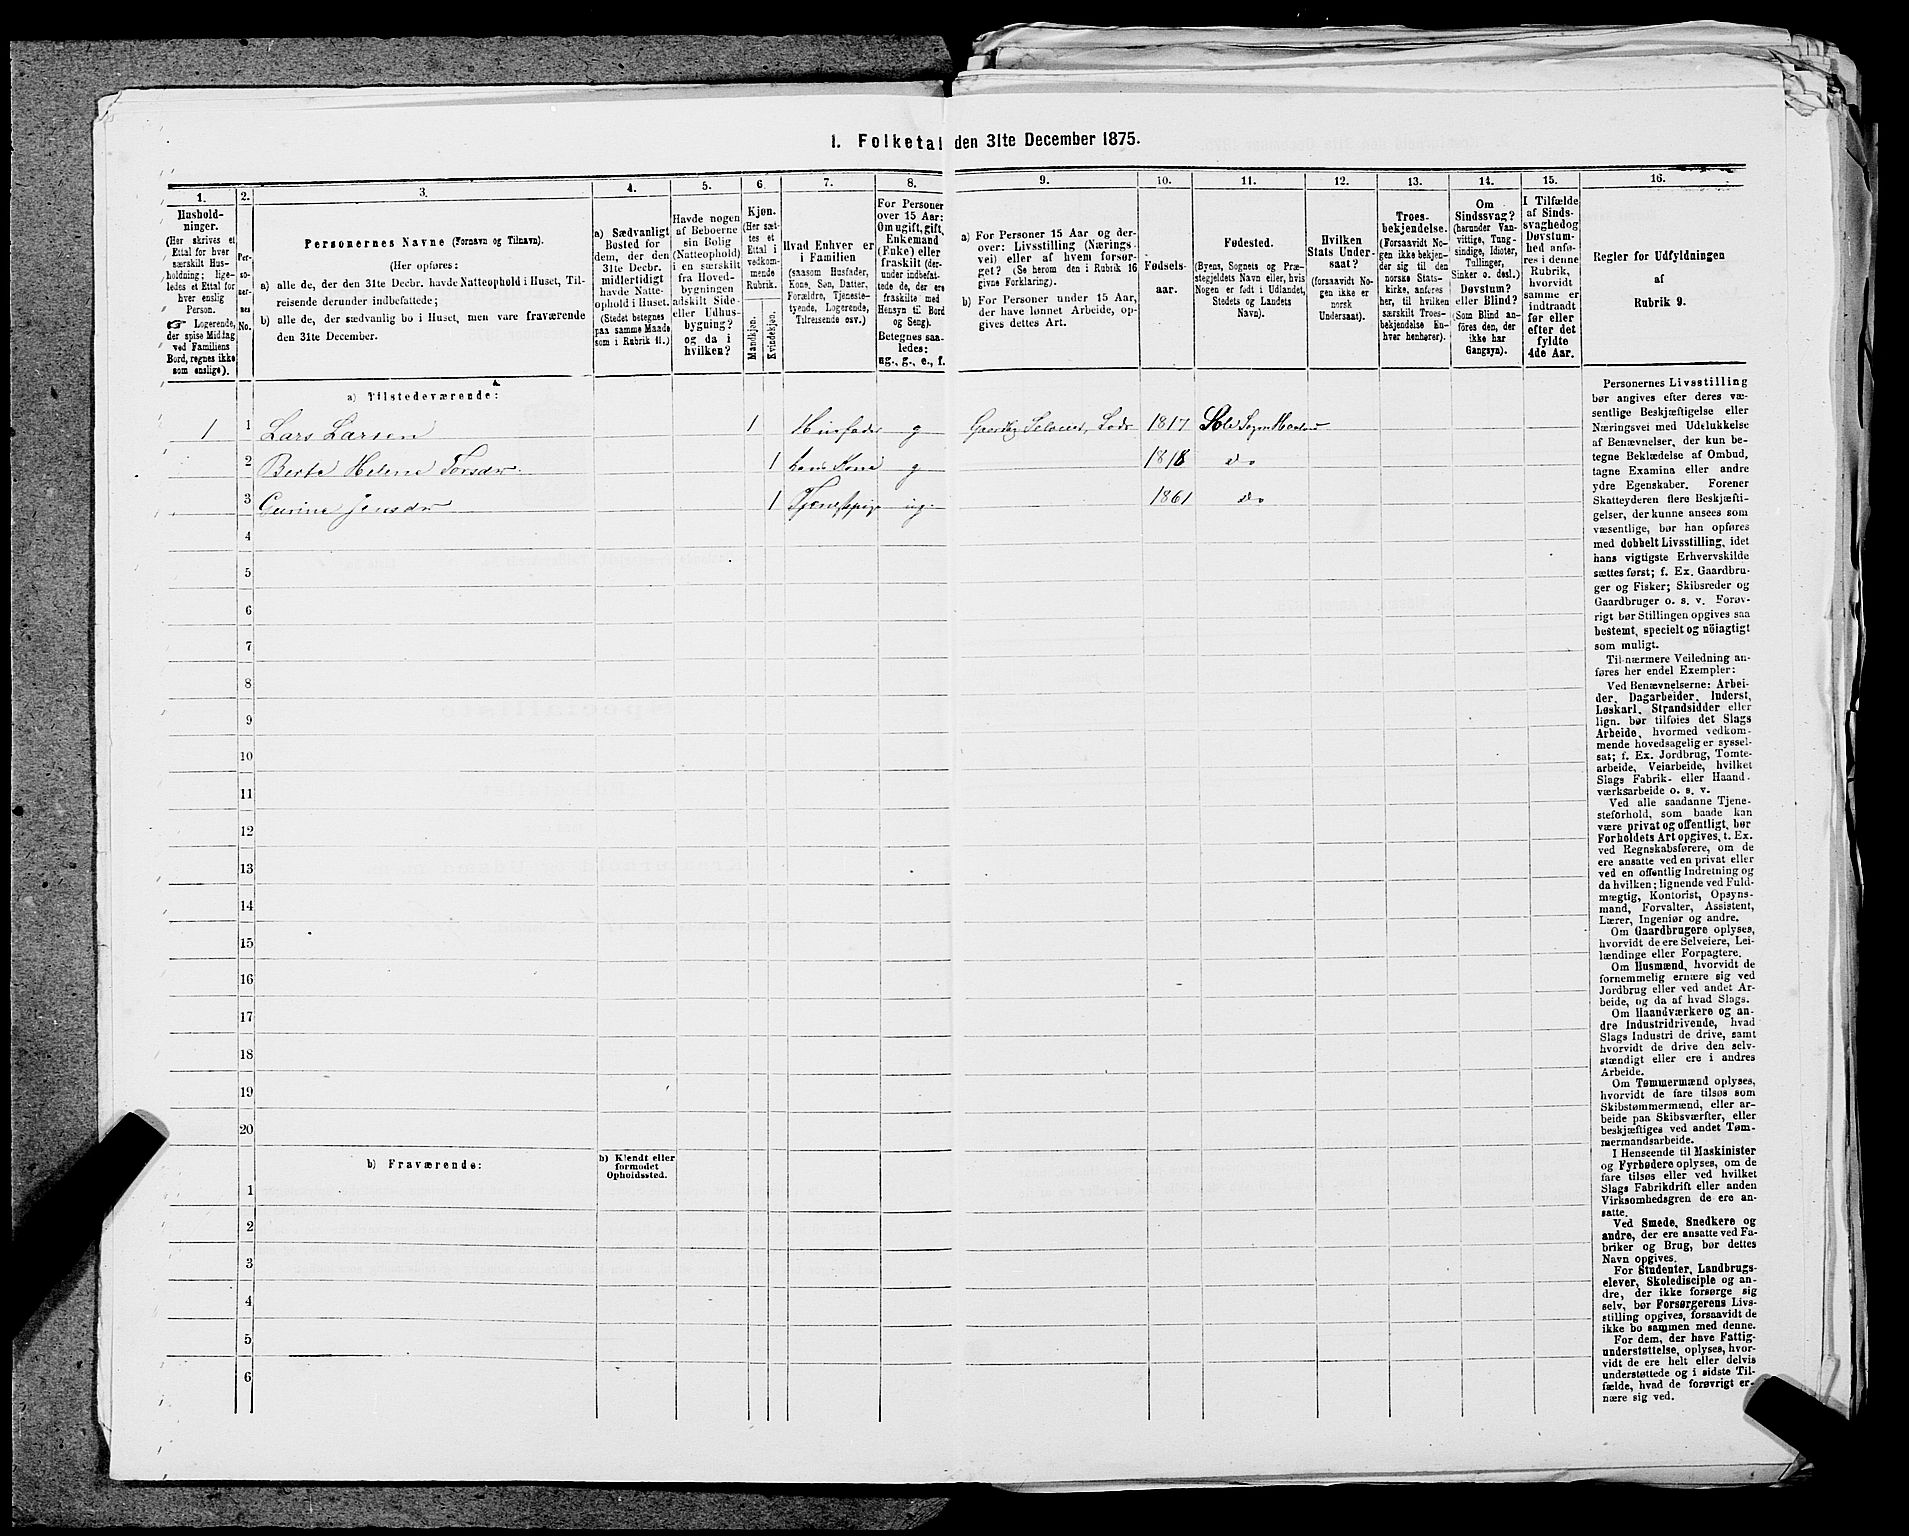 1. Folketal den 31te December 1875.
1. 2. 3. 4. 5. 6. 7. 8. 9. 10. 11. 12. 13. 14. 15. 16.
Hushold-
ninger.
(Her skrives et
Ettal for hver
særskilt Hus-
holdning; lige-
ledes et Ettal for
hver enslig
Person.
☞ Logerende,
der spise Middag
ved Familiens
Bord, regnes ikke
som enslige).
Per-
so-
ner-
nes
No.
Personernes Navne (Fornavn og Tilnavn).
(Her opføres:
a) alle de, der den 31te Decbr. havde Natteophold i Huset, Til-
reisende derunder indbefattede;
b) alle de, der sædvanlig bo i Huset, men vare fraværende
den 31te December.
a) Sædvanligt
Bosted for
dem, der den
31te Decbr.
midlertidigt
havde Natte-
ophold i Huset.
(Stedet betegnes
paa samme Maade
som i Rubrik 11.)
Havde nogen
af Beboerne
sin Bolig
(Natteophold)
i en særskilt
fra Hoved-
bygningen
adskilt Side-
eller Udhus-
bygning?
og da i
hvilken?
Kjøn.
(Her sæt-
tes et
Ettal i
vedkom-
mende
Rubrik.
Mandkjøn.
Kvindekjøn.
Hvad Enhver er
i Familien
(saasom Husfader,
Kone, Søn, Datter,
Forældre, Tjeneste-
tyende, Logerende,
Tilreisende osv.)
For Personer
over 15 Aar:
Om ugift, gift,
Enkemand
(Enke) eller
fraskilt (der-
under indbefat-
tede de, der ere
fraskilte med
Hensyn til Bord
og Seng).
Betegnes saa-
ledes:
ug., g., e., f.
a) For Personer 15 Aar og der-
over: Livsstilling (Nærings-
vei) eller af hvem forsør-
get? (Se herom den i Rubrik 16
givne Forklaring).
b) For Personer under 15 Aar,
der have lønnet Arbeide, op-
gives dettes Art.
Fødsels-
aar.
Fødested.
(Byens, Sognets og Præ-
stegjeldets Navn eller, hvis
Nogen er født i Udlandet,
Stedets og Landets
Navn).
Hvilken
Stats Under-
saat?
(forsaavidt No-
gen ikke er
norsk
Undersaat).
Troes-
bekjendelse.
(Forsaavidt No-
gen ikke bekjen-
der sig til den
norske Stats-
kirke, anføres
her, til hvilken
særskilt Troes-
bekjendelse En-
hver henhører).
Om
Sindssvag?
(herunder Van-
vittige, Tung-
sindige, Idioter,
Tullinger,
Sinker o. desl.)
Døvstum?
eller Blind?
(Som Blind an-
føres den, der
ikke har
Gangsyn).
I Tilfælde
af Sinds-
svaghed og
Døvstum-
hed anfø-
res i denne
Rubrik,
hvorvidt
samme er
indtraadt
før eller
efter det
fyldte
4de Aar.
Regler for Udfyldningen
af
Rubrik 9.
a) Tilstedeværende:
1 1 Lars Larsen 1 Husfader g Gaardbr. Selveier, Lods 1817 Sole Sogn
2 Berte Helene Torsdr. 1 hans Kone g 1818 do
3 Gurine Jensdr 1 Tjenestepige ug. 1861 do
4
5
6
7
8
9
10
11
12
13
14
15
16
17
18
19
20
b) Fraværende:
b) Kjendt eller
formodet
Opholdssted.
1
2
3
4
5
6
Personernes Livsstilling
bør angives efter deres væ-
sentlige Beskjæftigelse eller
Næringsvei med Udelukkelse
af Benævnelser, der kun be-
tegne Beklædelse af Ombud,
tagne Examina eller andre
ydre Egenskaber. Forener
Skatteyderen flere Beskjæfti-
gelser, der kunne ansees som
væsentlige, bør han opføres
med dobbelt Livsstilling, idet
hans vigtigste Erhvervskilde
sættes først; f. Ex. Gaardbru-
ger og Fisker; Skibsreder og
Gaardbruger o. s. v. Forøv-
rigt bør Stillingen opgives saa
bestemt, specielt og nöiagtigt
som muligt.
Til nærmere Veiledning an-
føres her endel Exempler:
Ved Benævnelserne: Arbei-
der, Dagarbeider, Inderst,
Løskarl, Strandsidder eller
lign. bør tilføies det Slags
Arbeide, hvormed vedkom-
mende hovedsagelig er syssel-
sat; f. Ex. Jordbrug, Tomte-
arbeide, Veiarbeide, hvilket
Slags Fabrik- eller Haand-
værksarbeide o. s. v.
Ved alle saadanne Tjene-
steforhold, som baade kan
være privat og offentligt, bør
Forholdets Art opgives, t. Ex.
ved Regnskabsførere, om de
ere ansatte ved en privat eller
ved en offentlig Indretning og
da hvilken; lignende ved Fuld-
mægtig, Kontorist, Opsyns-
mand, Forvalter, Assistent,
Lærer, Ingeniør og andre.
Om Gaardbrugere oplyses,
hvorvidt de ere Selveiere, Lei-
lændinge eller Forpagtere.
Om Husmænd, hvorvidt de
fornemmelig ernære sig ved
Jordbrug eller ved andet Ar-
beide, og da af hvad Slags.
Om Haandværkere og an-
dre Industridrivende, hvad
Slags Industri de drive, samt
hvorvidt de drive den selv-
stændigt eller ere i andres
Arbeide.
Om Tømmermænd oplyses,
hvorvidt de fare tilsøs som
Skibstømmermænd, eller ar-
beide paa Skibsværfter, eller
beskjæftiges ved andet Tøm-
mermandsarbeide.
I Henseende til Maskinister
og Fyrbødere oplyses, om de
fare tilsøs eller ved hvilket
Slags Fabrikdrift eller anden
Virksomhedsgren de ere an-
satte.
Ved Smede, Snedkere og
andre, der ere ansatte ved Fa-
briker og Brug, bør dettes
Navn opgives.
For Studenter, Landbrugs-
elever, Skoledisciple og an-
dre, der ikke forsørge sig
selv, bør Forsørgerens Livs-
stilling opgives, forsaavidt de
ikke bo sammen med denne.
For dem, der have Fattig-
understøttelse, oplyses, hvor-
vidt de ere helt eller delvis
understøttede og i sidste Til-
fælde, hvad de forøvrigt er-
nære sig ved.